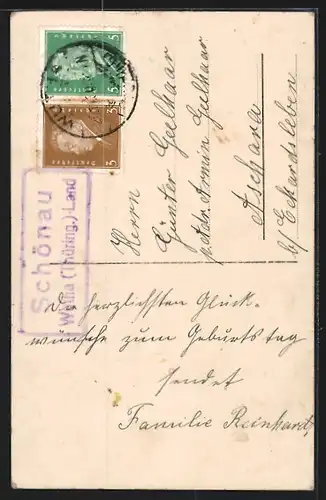 5
5
Deutsches
3
3
Deutsches
Schönau
Wutha (Thüring.) Land
Herrn
Günter Geelhaar
p. Adr. Armin Geelhaar
Aschara
b/ Eckardsleben
Die herzlichsten Glück-
wünsche zum Geburtstag
sendet
Familie Reinhardt